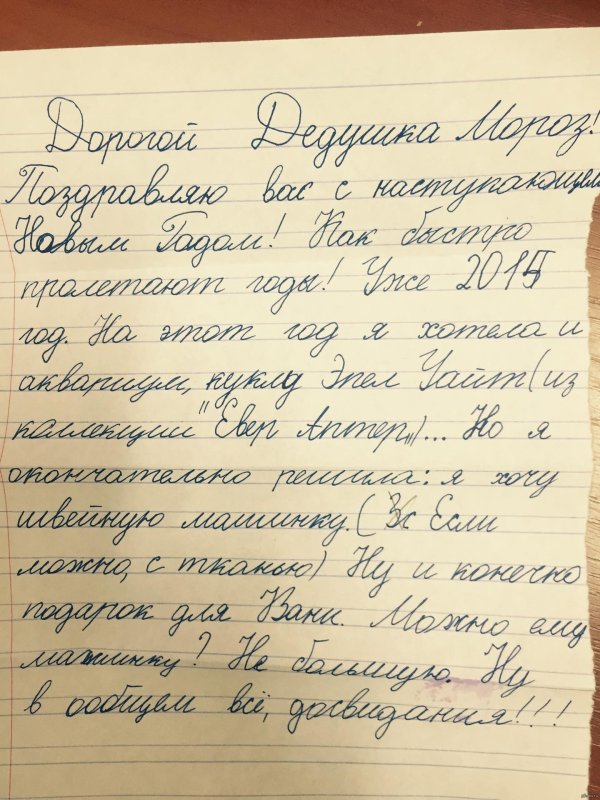 Дорогой Дедушка Мороз!
Поздравляю вас с наступающем
Новым Годом! Как быстро
пролетают годы! Уже 2015
год. На этот год я хотела и
аквариум, куклу Эпел Уайт (из
коллекции "Евер Аптер„)... Но я
окончательно решила: я хочу
швейную машинку. (Если
можно, с тканью) Ну и конечно
подарок для Вани. Можно ему
машинку? Не большую. Ну
в ообщем всё, досвидания!!!